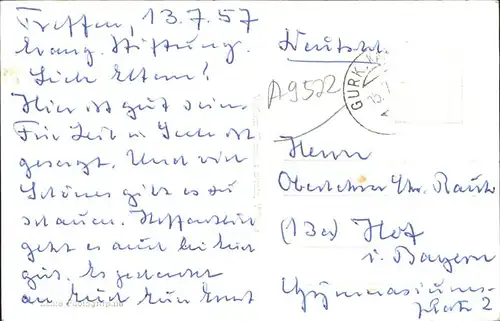 Treffen, 13.7.57
Evang. Stiftung.
Liebe Eltern!
Hier ist gut sein.
Für Leib u. Seele ist
gesorgt. Und viel
Schönes gibt es zu
schauen. Hoffentlich
geht es auch bei Euch
gut. Es gedenket
an Euch Euer Ernst
Deutschl.
A9522
GURK
Herrn
Oberlehrer Chr. Rauh
(13a) Hof
i. Bayern
Gymnasiums-
platz 2